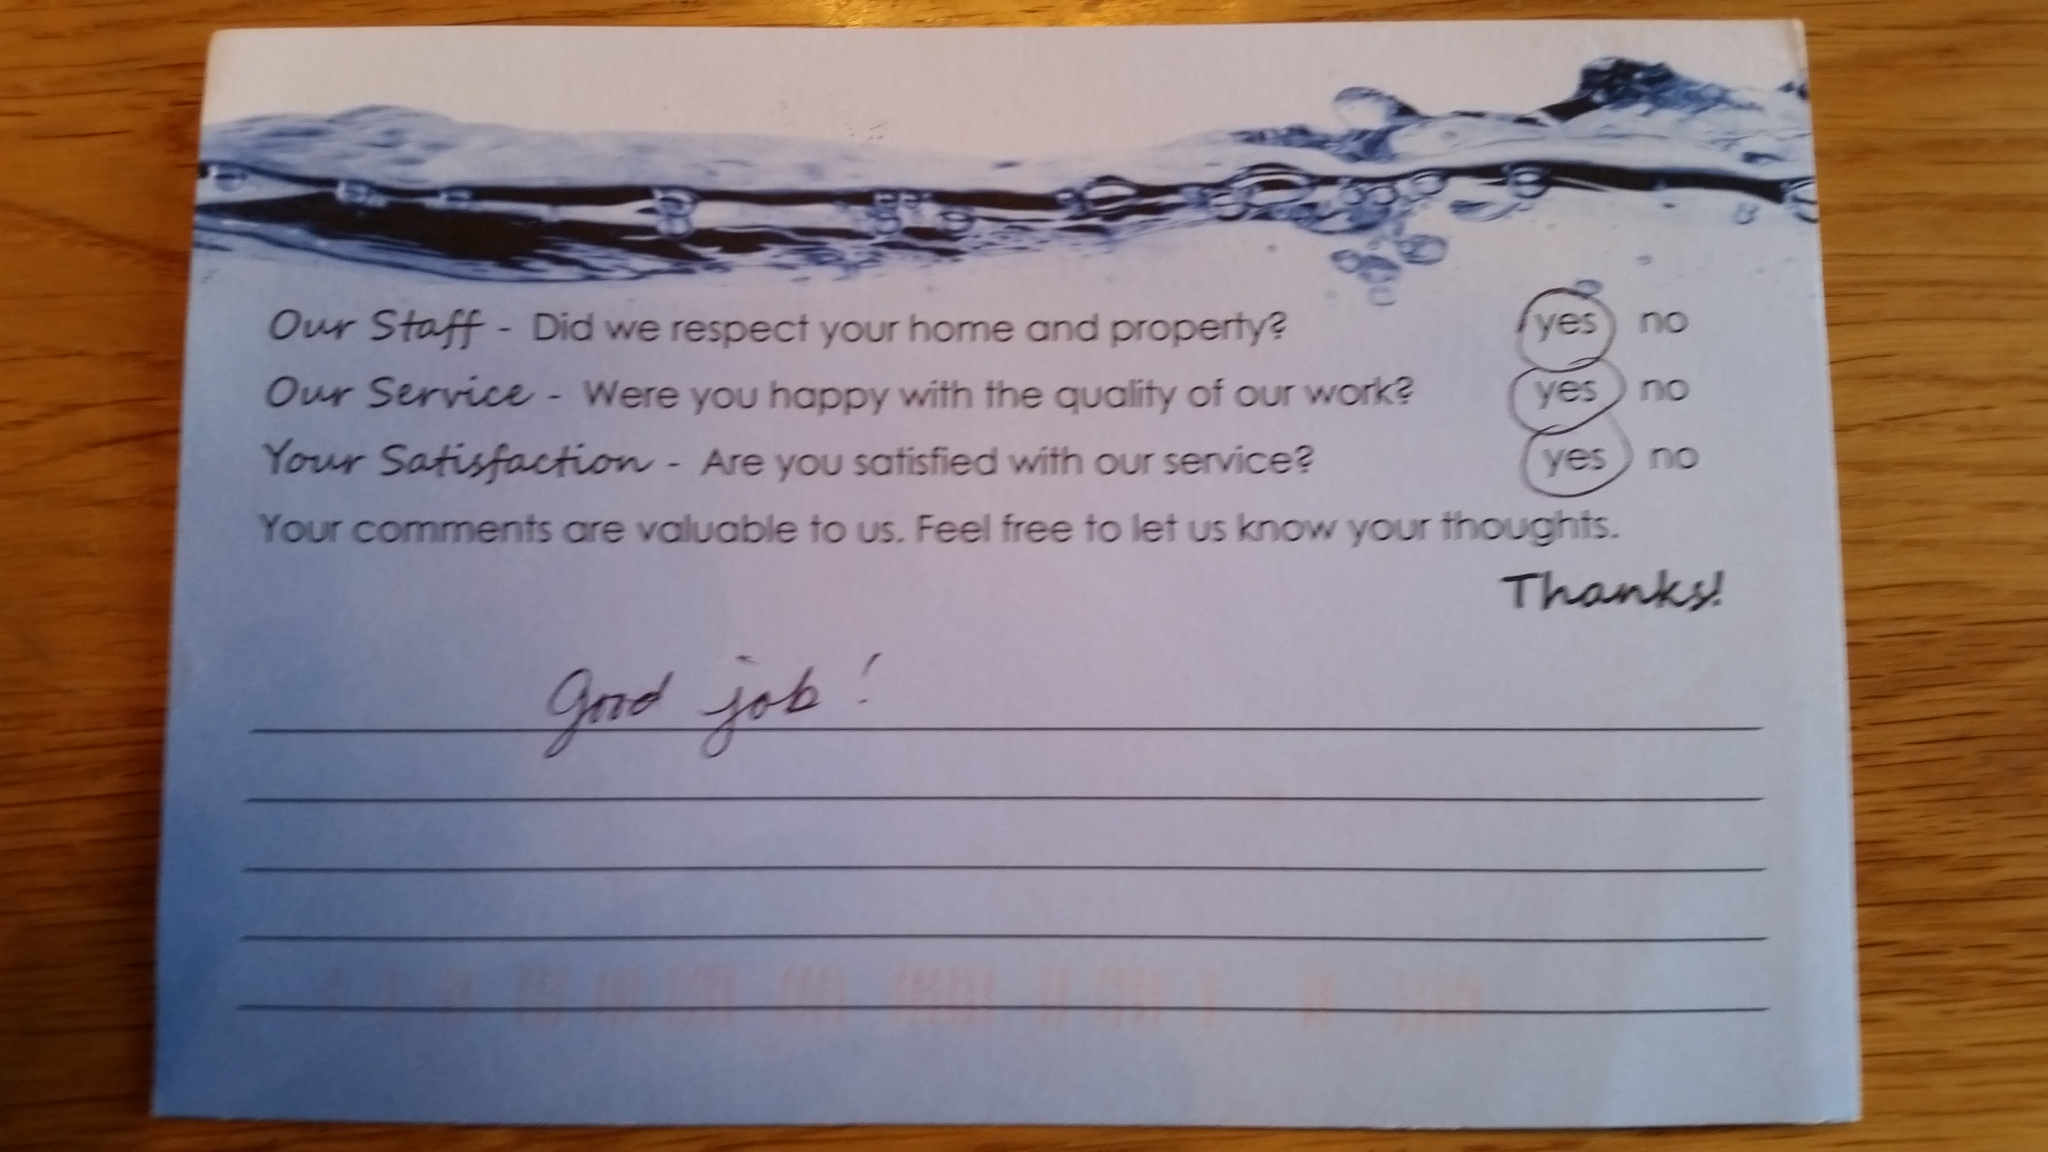 Our Staff - Did we respect your home and property? yes no
Our Service - Were you happy with the quality of our work? yes no
Your Satisfaction - Are you satisfied with our service? yes no
Your comments are valuable to us. Feel free to let us know your thoughts.
Thanks!
Good job!